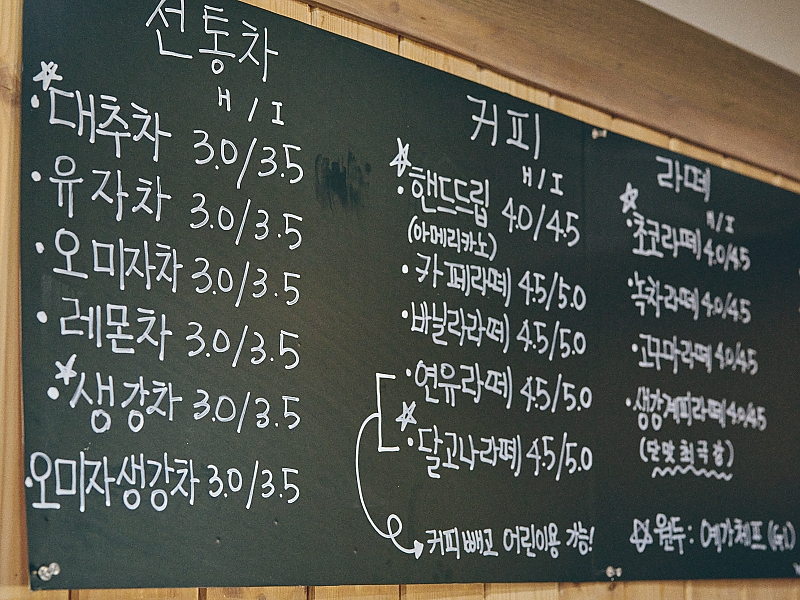 전통차
H / I
☆
• 대추차 3.0/3.5
• 유자차 3.0/3.5
• 오미자차 3.0/3.5
• 레몬차 3.0/3.5
☆
• 생강차 3.0/3.5
• 오미자생강차 3.0/3.5
커피
H / I
☆
• 핸드드립 4.0/4.5
(아메리카노)
• 카페라떼 4.5/5.0
• 바닐라라떼 4.5/5.0
• 연유라떼 4.5/5.0
☆
• 달고나라떼 4.5/5.0
커피 빼고 어린이용 가능!
라떼
H / I
☆
• 초코라떼 4.0/4.5
• 녹차라떼 4.0/4.5
• 고구마라떼 4.0/4.5
• 생강계피라떼 4.0/4.5
(단맛 최극강)
☆ 원두: 예가체프 (G1)